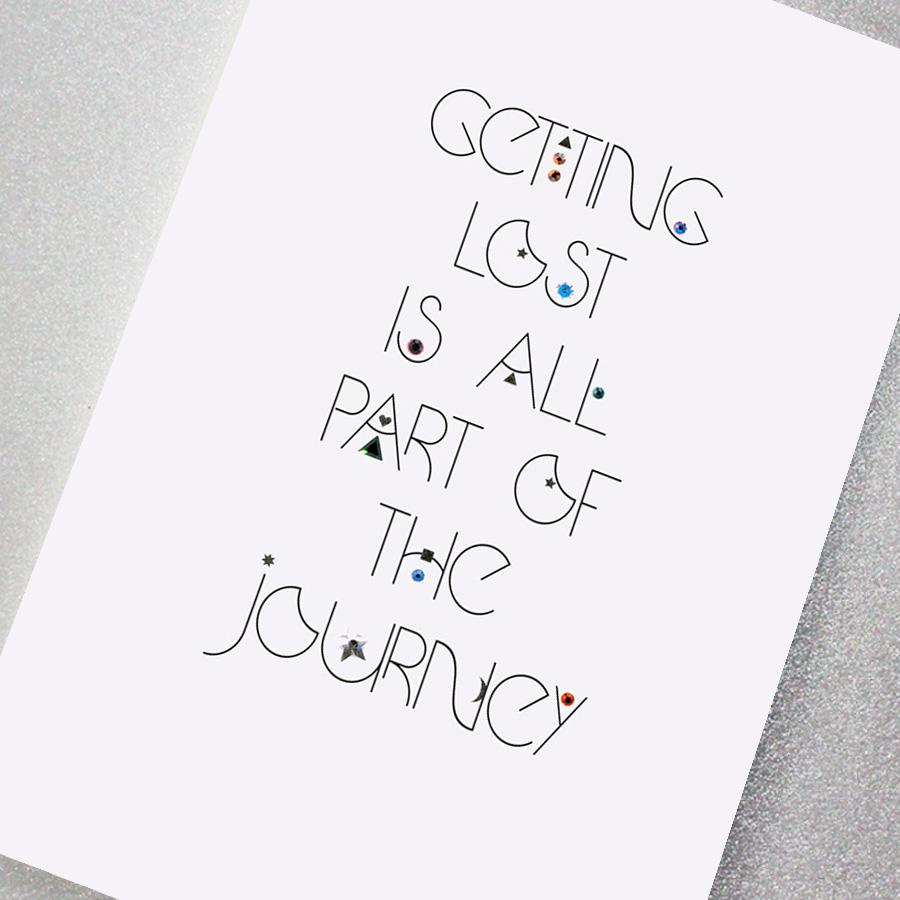 GeTTING
LOST
IS ALL
PART OF
THe
jOURNeY